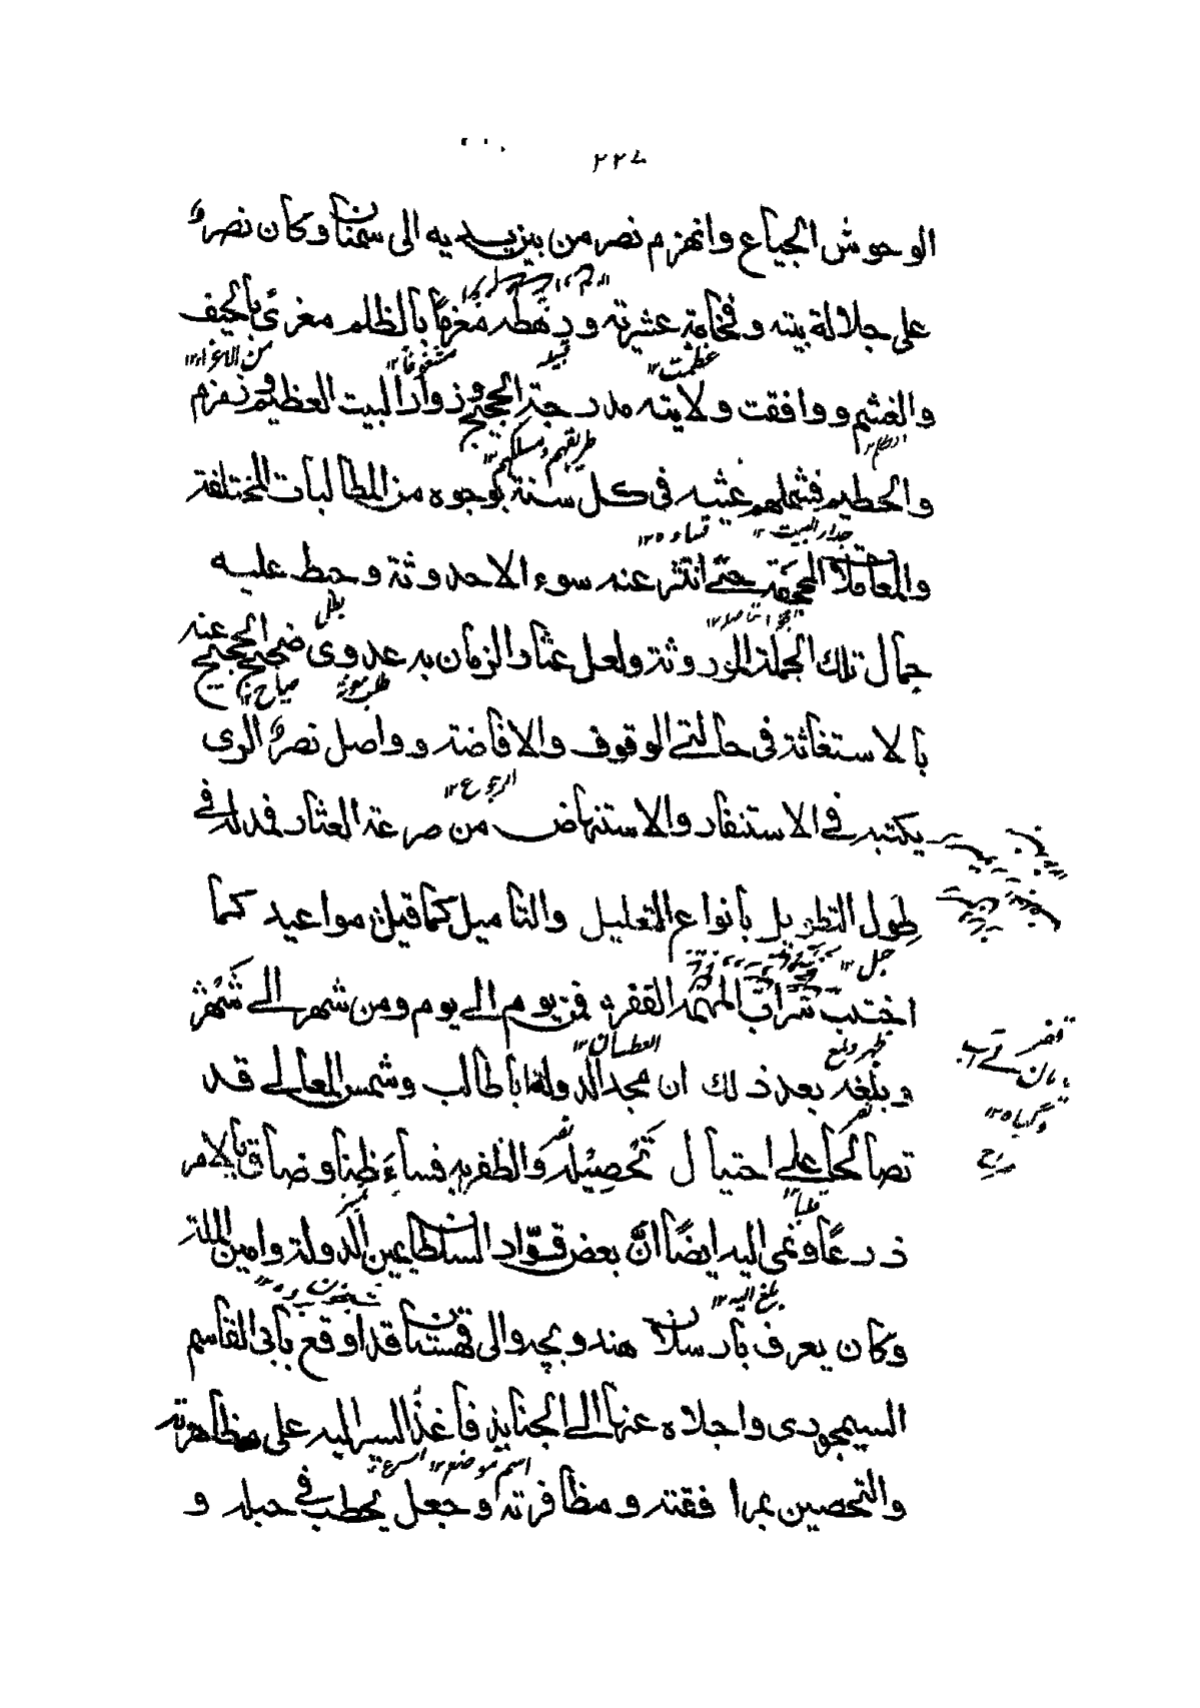 ٢٢٧
الوحوش الجياع وانهزم نصر من بين يديه الى سمنان وكان نصرٌ
على جلالة بيته وفخامة عشيرته ورهطه مُغرمًا بالظلم مغرىً بالحيف
عظمت ١٢ قبيله مشغوفًا ١٢ من الاغراء ١٢
والغشم ووافقت ولايته مدرجة الحجيج وزوار البيت العظيم وزمزم
طريقهم ومسلكهم ١٢
والحطيم فشملهم غشيه فى كل سنة بوجوه من المطالبات المختلفة
جدار البيت ١٢
والمعاملات المجحفة حتى انتثر عنه سوء الاحدوثة وحبط عليه
بطل
جمال تلك الجملة الموروثة ولعل عثار الزمان به عدوى ضجيج الحجيج عنه
صياح ١٢
بالاستغاثة فى حالتى الوقوف والافاضة وواصل نصرٌ الرى
الرجوع ١٢
يكتبه فى الاستنفار والاستنهاض من صرعة العثار فمد له فى
طول التطويل بانواع التعليل والتاميل كما قيل مواعيد كما
اختب سراب المهمه القفر فمن يوم الى يوم ومن شهر الى شهر
العطسان ١٢
وبلغه بعد ذلك ان مجد الدولة ابا طالب وشمس المعالى قد
تصالحا على احتيال تحصيله والظفر به فساءَ ظنا وضاق بالامر
ذرعًا ونمى اليه ايضًا انَّ بعض قوّاد السلطان يمين الدولة وامين الملة
بلغ اليه ١٢
وكان يعرف بارسلان هندوبچه والى قهستان قد اوقع بابى القاسم
السيمجورى واجلاه عنها الى الجنابذ فاغذ السير اليه على مظاهرته
اسم موضع ١٢ اسرع ١٢
والتحصين بمرافقته ومظافرته وجعل يحطب فى حبله و